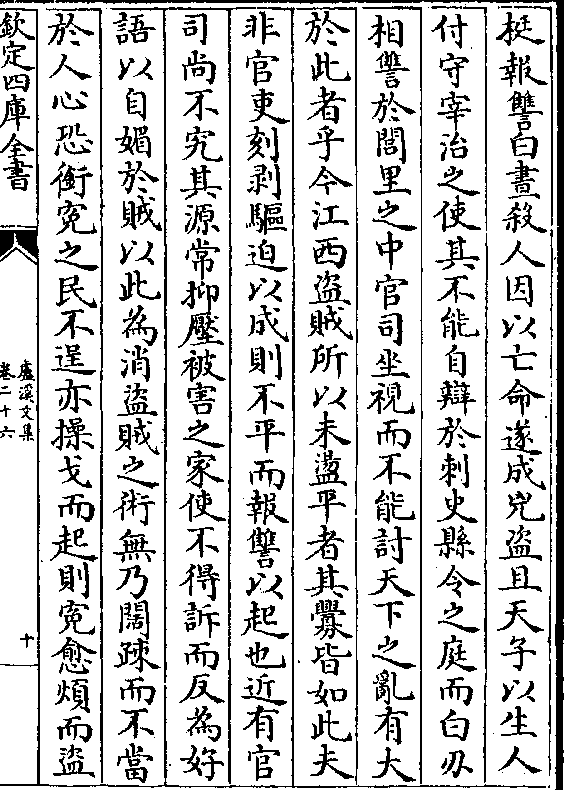 挺報讐白晝殺人因以亡命遂成兇盗且天子以生人
付守宰治之使其不能自辯於刺史縣令之庭而白刃
相讐於閭里之中官司坐視而不能討天下之亂有大
於此者乎今江西盜賊所以未盪平者其釁皆如此夫
非官吏刻剥驅迫以成則不平而報讐以起也近有官
司尚不究其源常抑壓被害之家使不得訴而反為好
語以自媚於賊以此為消盜賊之術無乃闊踈而不當
於人心恐銜寃之民不逞亦操戈而起則寃愈煩而盜
欽定四庫全書
盧溪文集
卷二十六
十